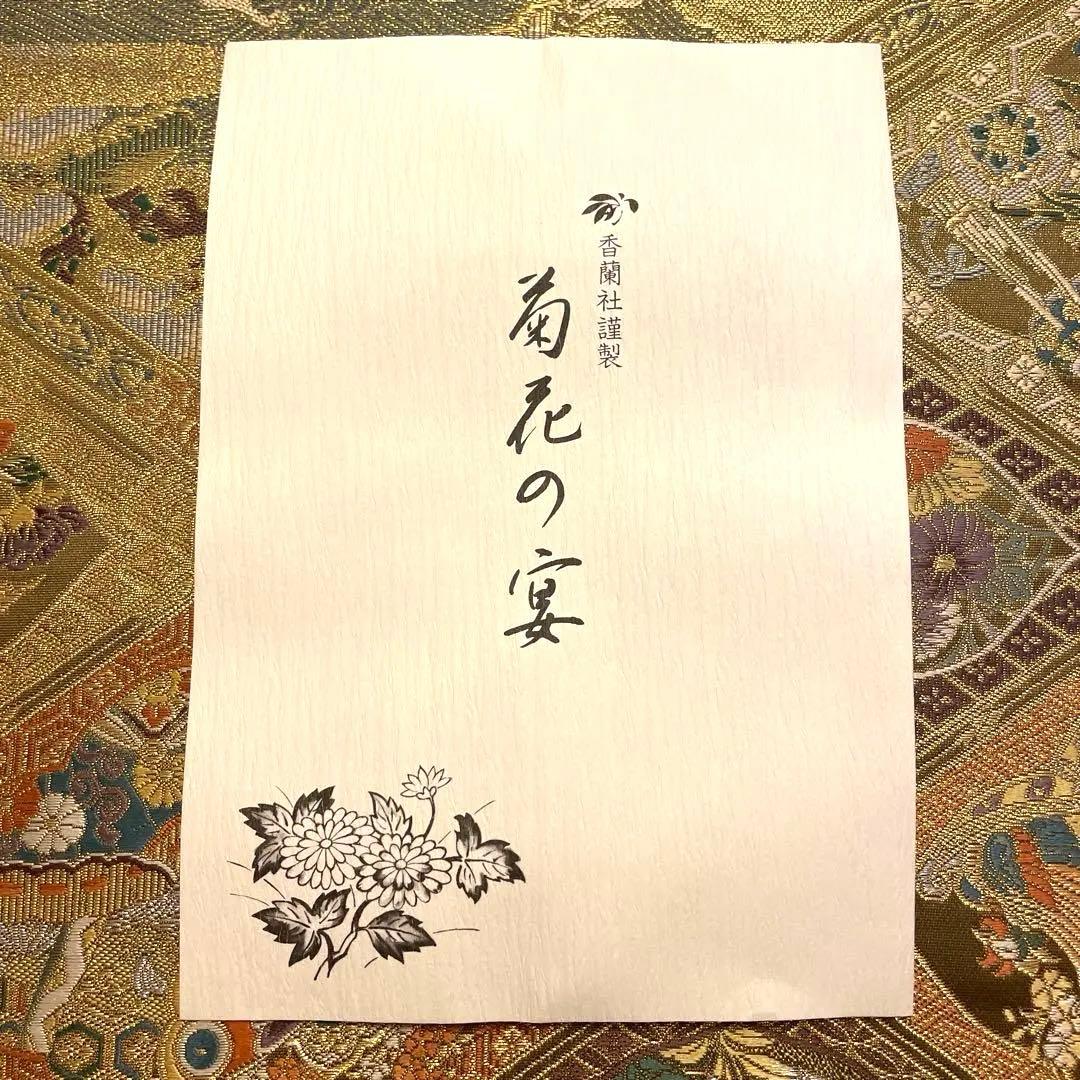 香蘭社謹製
菊花の宴